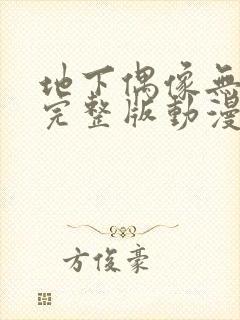 地下偶像無
完整版動漫
方俊豪